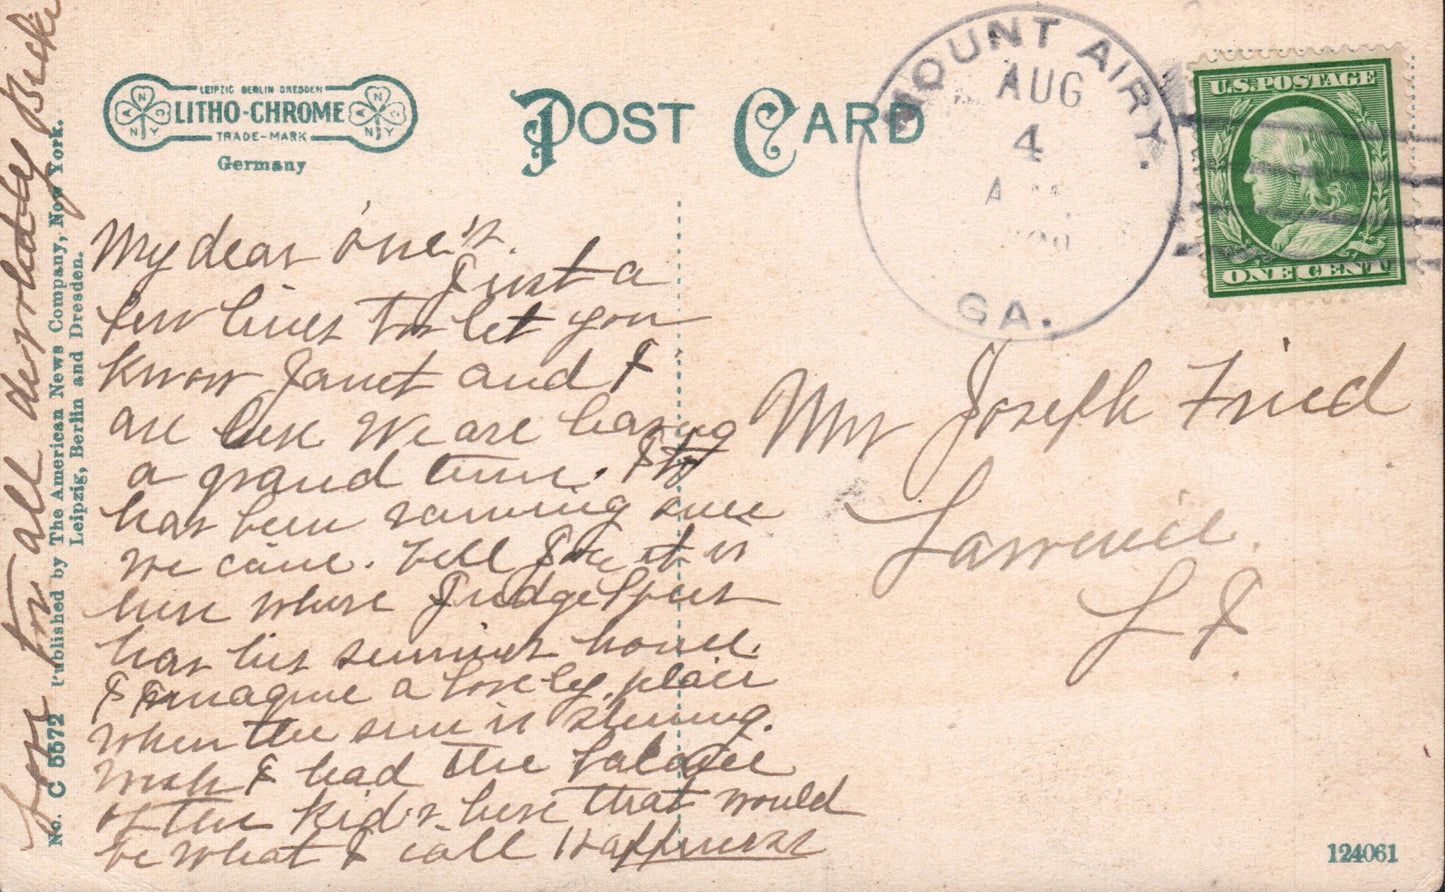 LEIPZIG BERLIN DRESDEN
LITHO-CHROME
TRADE-MARK
Germany
POST CARD
MOUNT AIRY.
AUG
4
GA.
U.S. POSTAGE
ONE CENT
My dear one's.
Just a
few lines to let you
know Janet and I
are here We are having
a grand time. It
has been raining since
we came. Tell Joe it is
here where Judge Speer
has his summer home.
I imagine a lovely place
when the sun is shining.
Wish I had the balance
of the kid's here that would
be what I call Happiness
Love to all devotedly
Mr Joseph Fried
Lawrence
L I
No. C 5572 Published by The American News Company, New York.
Leipzig, Berlin and Dresden.
124061